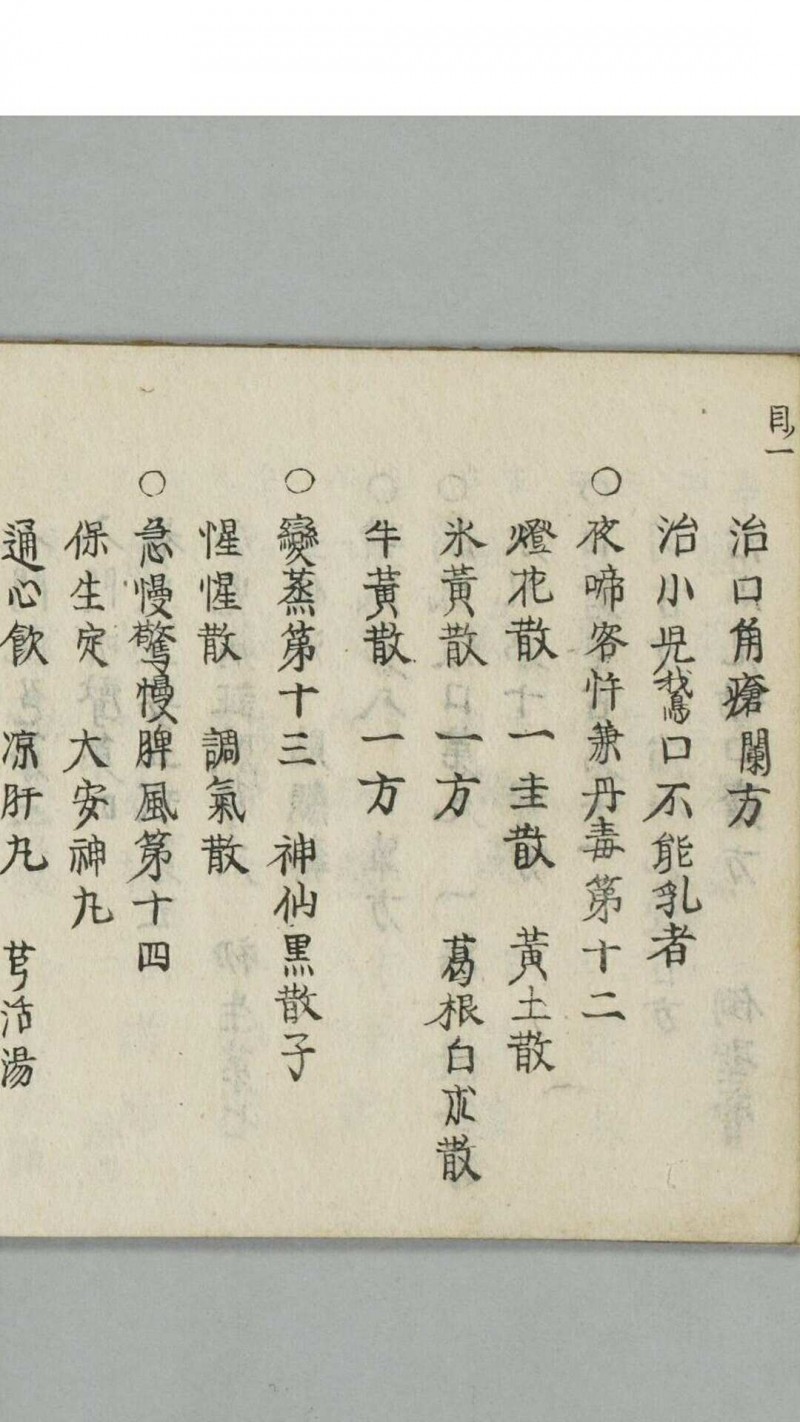 目一
治口角瘡闌方
治小児鵞口不能乳者
○夜啼客忤兼丹毒第十二
燈花散 一圭散 黃土散
氷黃散 一方 葛根白朮散
牛黃散 一方
○變蒸第十三 神仙黒散子
惺惺散 調氣散
○急慢驚慢脾風第十四
保生定 大安神九
通心飲 凉肝九 芎活湯